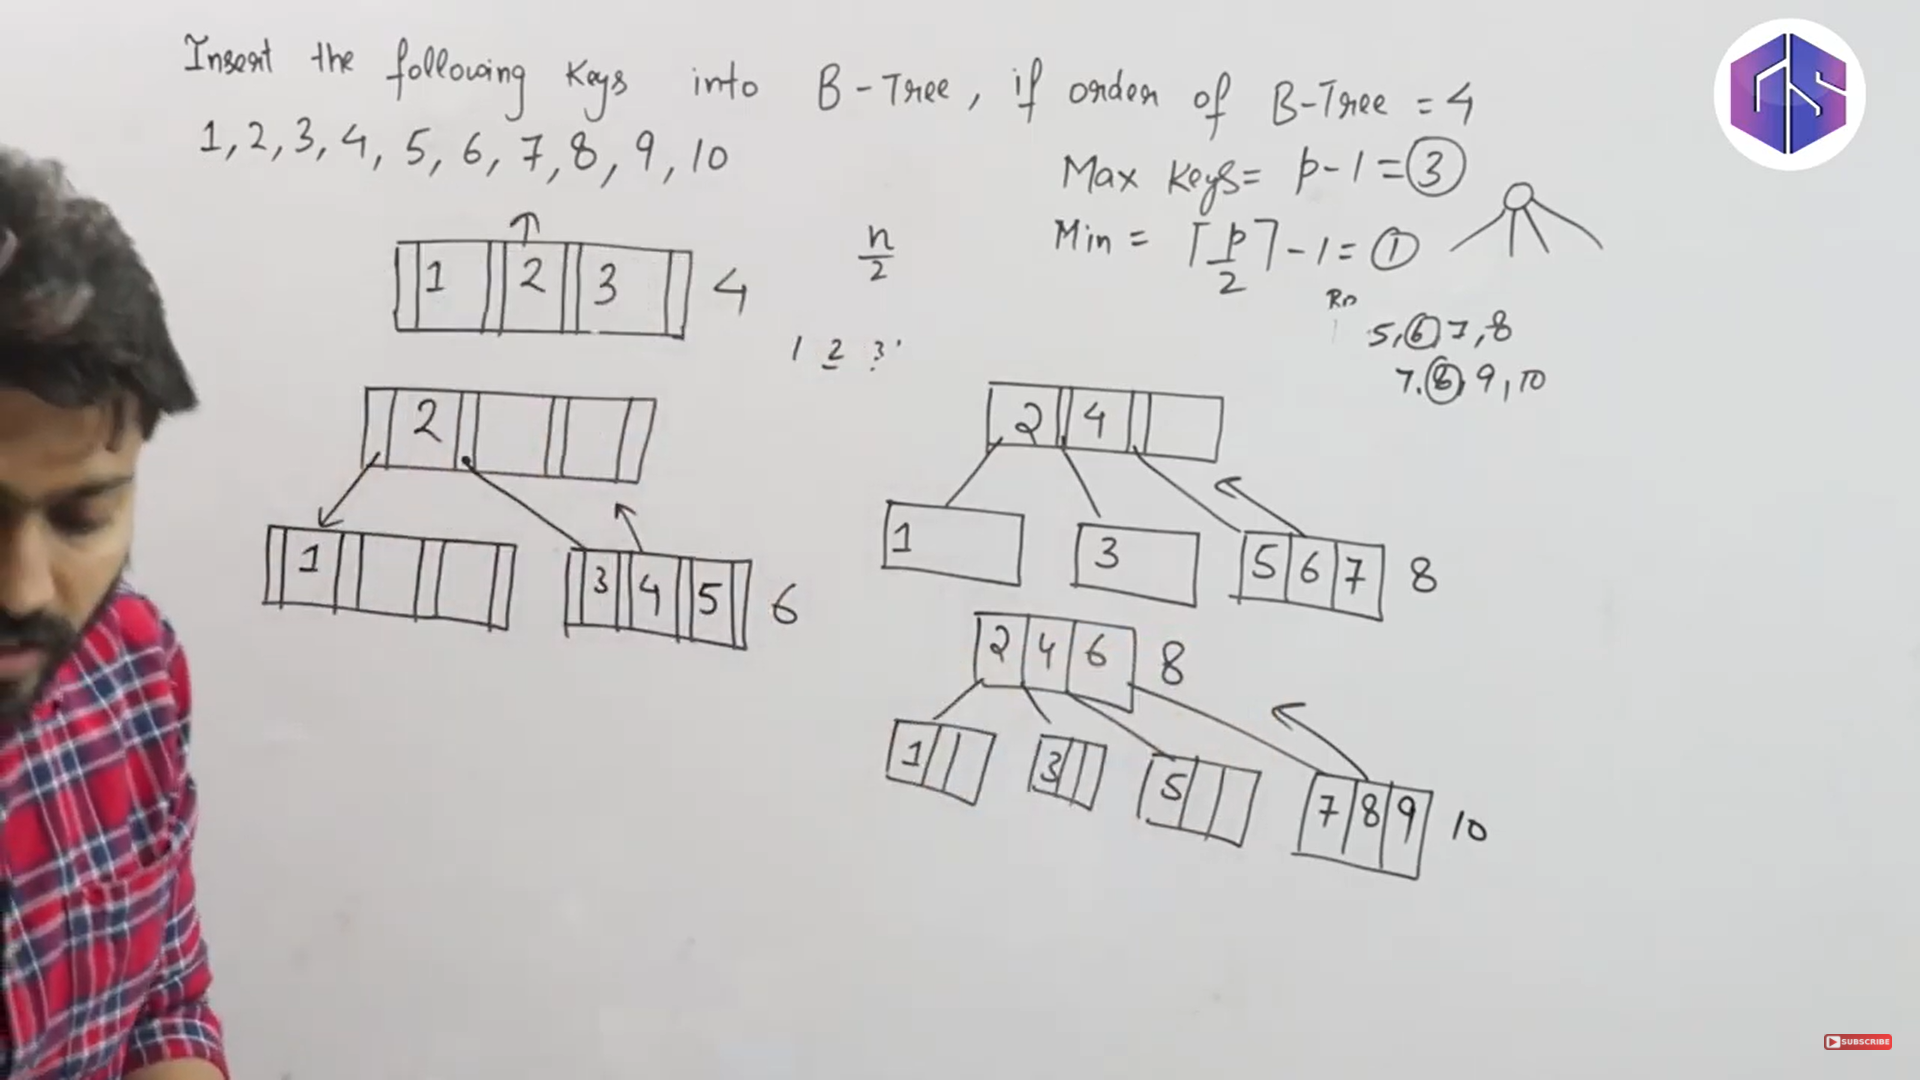 Insert the following keys into B-Tree, if order of B-Tree = 4
1, 2, 3, 4, 5, 6, 7, 8, 9, 10
Max keys = p-1 = 3
Min = ⌈p/2⌉ - 1 = 1
n/2
1 2 3 4
1 2 3
5, 6, 7, 8
7, 8, 9, 10
2
1
3 4 5 6
2 4
1
3
5 6 7 8
2 4 6 8
1
3
5
7 8 9 10
SUBSCRIBE